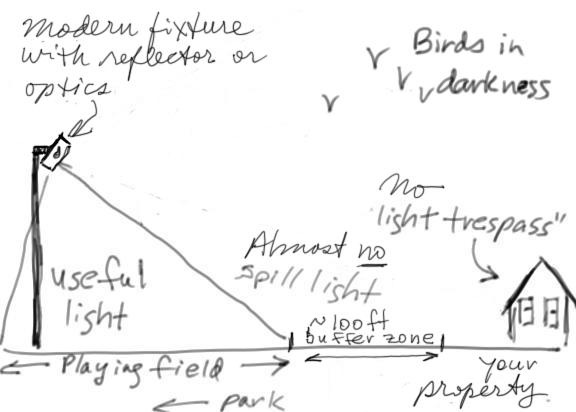 Modern fixture
with reflector or
optics
Birds in
darkness
No
"light trespass"
Almost no
spill light
useful
light
~100ft
buffer zone
Playing field
your
property
park